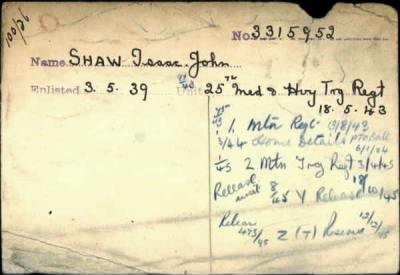 100/26
No. 3315952
Name. SHAW Isaac John
Enlisted 3. 5. 39 Unit 25TH Med & Hvy Trg Regt
18. 5. 43
1. Mtn Regt 13/8/43
3/44 Home Details
6/1/44
1/45 2 Mtn Trg Regt 3/4/45
Release await 8/45 Y Release 18/10/45
Release 473/45 Z (T) Reserve 12/12/45